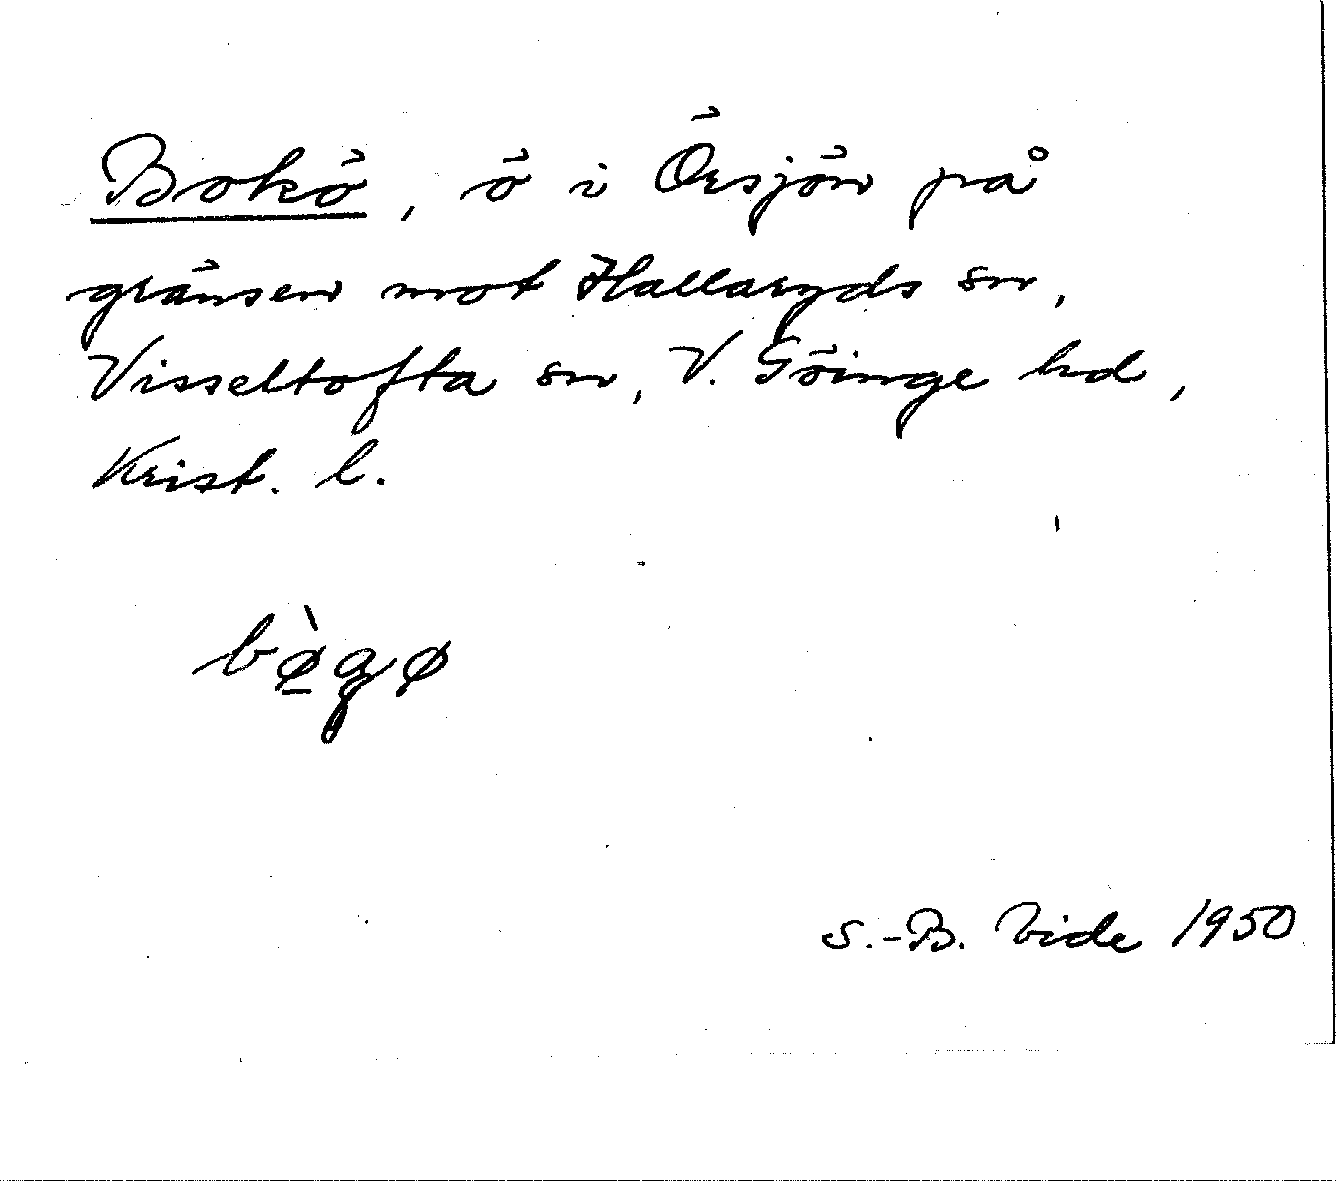 Bokö, ö i Örsjön på
gränsen mot Hallaryds sn,
Visseltofta sn, V. Göinge hd,
Krist. l.
bø̱̀gø
S.-B. Vide 1950